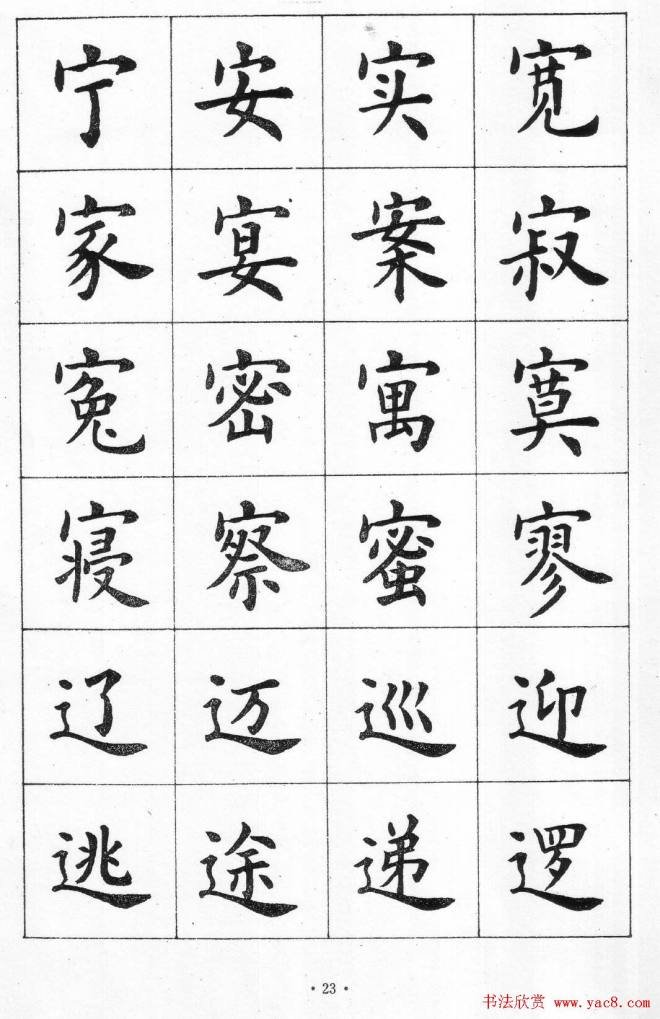 宁安实宽
家宴案寂
冤密寓寞
寝察蜜寥
辽迈巡迎
逃途递逻
·23·
书法欣赏 www.yac8.com